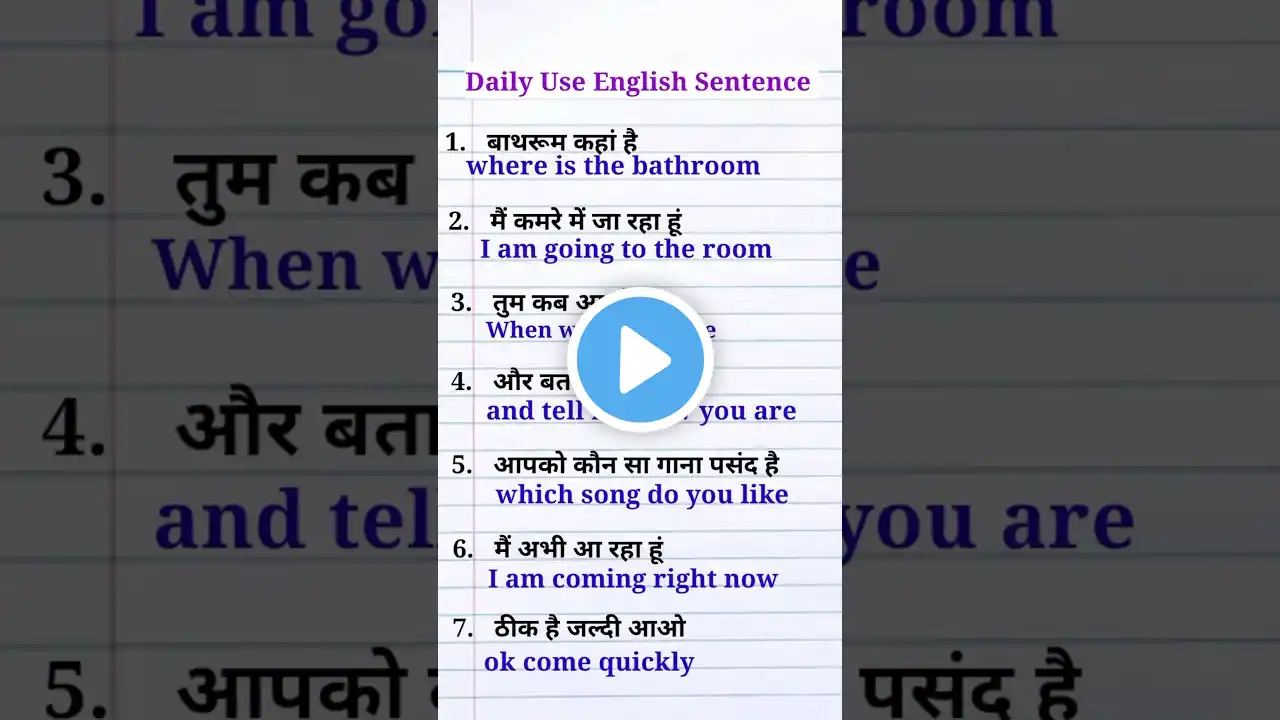 Daily Use English Sentence
1. बाथरूम कहां है
where is the bathroom
2. मैं कमरे में जा रहा हूं
I am going to the room
3. तुम कब
When
4. और
and tell you are
5. आपको कौन सा गाना पसंद है
which song do you like
6. मैं अभी आ रहा हूं
I am coming right now
7. ठीक है जल्दी आओ
ok come quickly